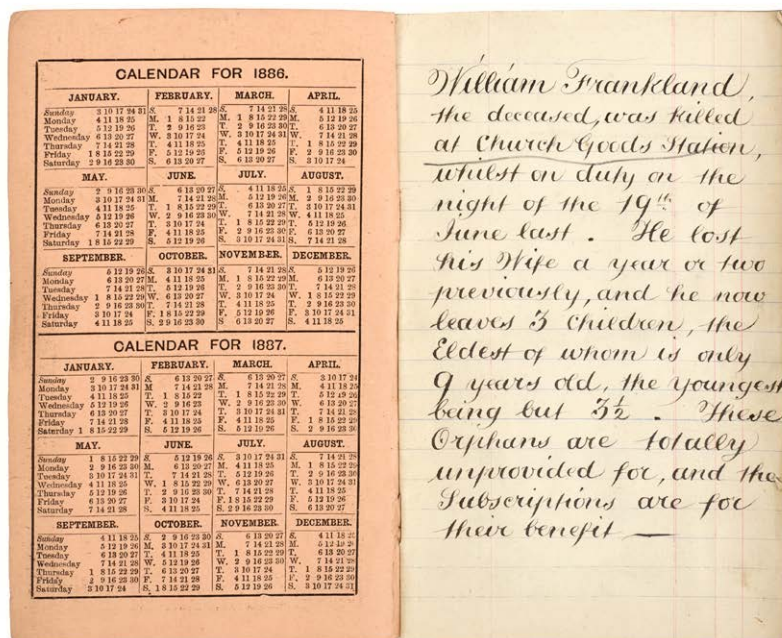 CALENDAR FOR 1886.
JANUARY. FEBRUARY. MARCH. APRIL.
Sunday 3 10 17 24 31 S. 7 14 21 28 S. 7 14 21 28 S. 4 11 18 25
Monday 4 11 18 25 M. 1 8 15 22 M. 1 8 15 22 29 M. 5 12 19 26
Tuesday 5 12 19 26 T. 2 9 16 23 T. 2 9 16 23 30 T. 6 13 20 27
Wednesday 6 13 20 27 W. 3 10 17 24 W. 3 10 17 24 31 W. 7 14 21 28
Thursday 7 14 21 28 T. 4 11 18 25 T. 4 11 18 25 T. 1 8 15 22 29
Friday 1 8 15 22 29 F. 5 12 19 26 F. 5 12 19 26 F. 2 9 16 23 30
Saturday 2 9 16 23 30 S. 6 13 20 27 S. 6 13 20 27 S. 3 10 17 24
MAY. JUNE. JULY. AUGUST.
Sunday 2 9 16 23 30 S. 6 13 20 27 S. 4 11 18 25 S. 1 8 15 22 29
Monday 3 10 17 24 31 M. 7 14 21 28 M. 5 12 19 26 M. 2 9 16 23 30
Tuesday 4 11 18 25 T. 1 8 15 22 29 T. 6 13 20 27 T. 3 10 17 24 31
Wednesday 5 12 19 26 W. 2 9 16 23 30 W. 7 14 21 28 W. 4 11 18 25
Thursday 6 13 20 27 T. 3 10 17 24 T. 1 8 15 22 29 T. 5 12 19 26
Friday 7 14 21 28 F. 4 11 18 25 F. 2 9 16 23 30 F. 6 13 20 27
Saturday 1 8 15 22 29 S. 5 12 19 26 S. 3 10 17 24 31 S. 7 14 21 28
SEPTEMBER. OCTOBER. NOVEMBER. DECEMBER.
Sunday 5 12 19 26 S. 3 10 17 24 31 S. 7 14 21 28 S. 5 12 19 26
Monday 6 13 20 27 M. 4 11 18 25 M. 1 8 15 22 29 M. 6 13 20 27
Tuesday 7 14 21 28 T. 5 12 19 26 T. 2 9 16 23 30 T. 7 14 21 28
Wednesday 1 8 15 22 29 W. 6 13 20 27 W. 3 10 17 24 W. 1 8 15 22 29
Thursday 2 9 16 23 30 T. 7 14 21 28 T. 4 11 18 25 T. 2 9 16 23 30
Friday 3 10 17 24 F. 1 8 15 22 29 F. 5 12 19 26 F. 3 10 17 24 31
Saturday 4 11 18 25 S. 2 9 16 23 30 S. 6 13 20 27 S. 4 11 18 25
CALENDAR FOR 1887.
JANUARY. FEBRUARY. MARCH. APRIL.
Sunday 2 9 16 23 30 S. 6 13 20 27 S. 6 13 20 27 S. 3 10 17 24
Monday 3 10 17 24 31 M. 7 14 21 28 M. 7 14 21 28 M. 4 11 18 25
Tuesday 4 11 18 25 T. 1 8 15 22 T. 1 8 15 22 29 T. 5 12 19 26
Wednesday 5 12 19 26 W. 2 9 16 23 W. 2 9 16 23 30 W. 6 13 20 27
Thursday 6 13 20 27 T. 3 10 17 24 T. 3 10 17 24 31 T. 7 14 21 28
Friday 7 14 21 28 F. 4 11 18 25 F. 4 11 18 25 F. 1 8 15 22 29
Saturday 1 8 15 22 29 S. 5 12 19 26 S. 5 12 19 26 S. 2 9 16 23 30
MAY. JUNE. JULY. AUGUST.
Sunday 1 8 15 22 29 S. 5 12 19 26 S. 3 10 17 24 31 S. 7 14 21 28
Monday 2 9 16 23 30 M. 6 13 20 27 M. 4 11 18 25 M. 1 8 15 22 29
Tuesday 3 10 17 24 31 T. 7 14 21 28 T. 5 12 19 26 T. 2 9 16 23 30
Wednesday 4 11 18 25 W. 1 8 15 22 29 W. 6 13 20 27 W. 3 10 17 24 31
Thursday 5 12 19 26 T. 2 9 16 23 30 T. 7 14 21 28 T. 4 11 18 25
Friday 6 13 20 27 F. 3 10 17 24 F. 1 8 15 22 29 F. 5 12 19 26
Saturday 7 14 21 28 S. 4 11 18 25 S. 2 9 16 23 30 S. 6 13 20 27
SEPTEMBER. OCTOBER. NOVEMBER. DECEMBER.
Sunday 4 11 18 25 S. 2 9 16 23 30 S. 6 13 20 27 S. 4 11 18 25
Monday 5 12 19 26 M. 3 10 17 24 31 M. 7 14 21 28 M. 5 12 19 26
Tuesday 6 13 20 27 T. 4 11 18 25 T. 1 8 15 22 29 T. 6 13 20 27
Wednesday 7 14 21 28 W. 5 12 19 26 W. 2 9 16 23 30 W. 7 14 21 28
Thursday 1 8 15 22 29 T. 6 13 20 27 T. 3 10 17 24 T. 1 8 15 22 29
Friday 2 9 16 23 30 F. 7 14 21 28 F. 4 11 18 25 F. 2 9 16 23 30
Saturday 3 10 17 24 S. 1 8 15 22 29 S. 5 12 19 26 S. 3 10 17 24 31
William Frankland,
the deceased, was killed
at Church Goods Station,
whilst on duty on the
night of the 19th of
June last. He lost
his Wife a year or two
previously, and he now
leaves 3 children, the
Eldest of whom is only
9 years old, the youngest
being but 3½. These
Orphans are totally
unprovided for, and the
Subscriptions are for
their benefit —